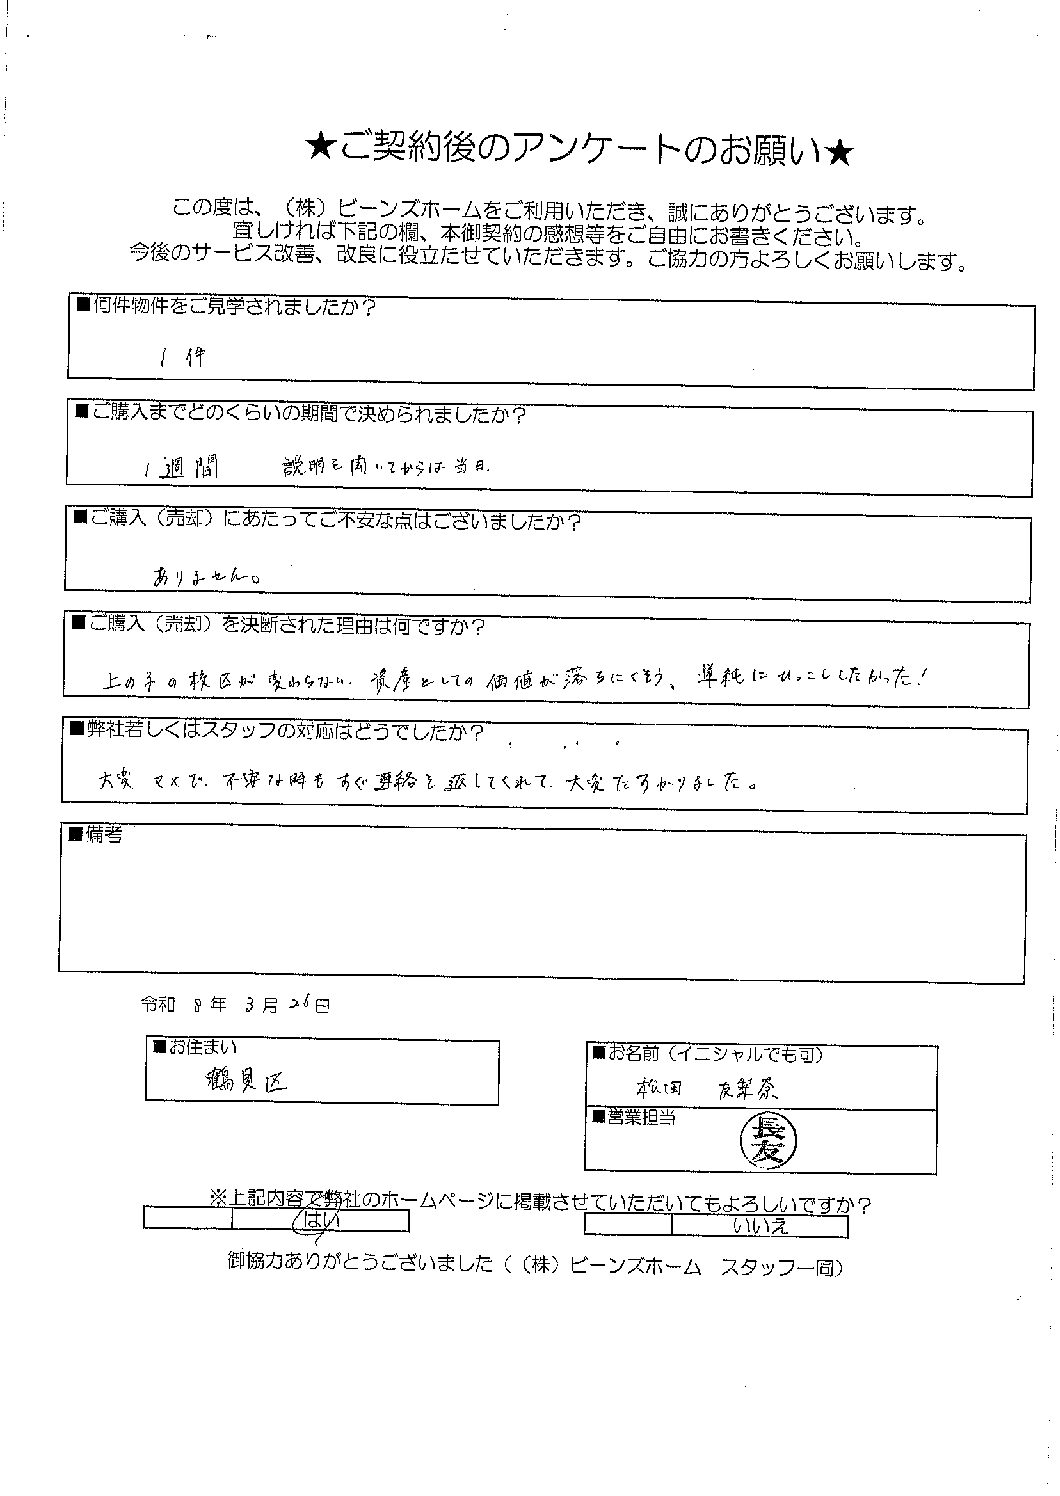 ★ご契約後のアンケートのお願い★
この度は、（株）ビーンズホームをご利用いただき、誠にありがとうございます。
宜しければ下記の欄、本御契約の感想等をご自由にお書きください。
今後のサービス改善、改良に役立たせていただきます。ご協力の方よろしくお願いします。
■何件物件をご見学されましたか？
1件
■ご購入までどのくらいの期間で決められましたか？
1週間 説明を聞いてからは当日
■ご購入（売却）にあたってご不安な点はございましたか？
ありません。
■ご購入（売却）を決断された理由は何ですか？
上の子の校区が変わらない、資産としての価値が落ちにくそう、単純にひっこししたかった！
■弊社若しくはスタッフの対応はどうでしたか？
大変マメで、不安な時もすぐ連絡を返してくれて、大変たすかりました。
■備考
令和 8年 3月 26日
■お住まい
鶴見区
■お名前（イニシャルでも可）
松田 友梨奈
■営業担当
長友
※上記内容で弊社のホームページに掲載させていただいてもよろしいですか？
はい いいえ
御協力ありがとうございました（（株）ビーンズホーム スタッフ一同）